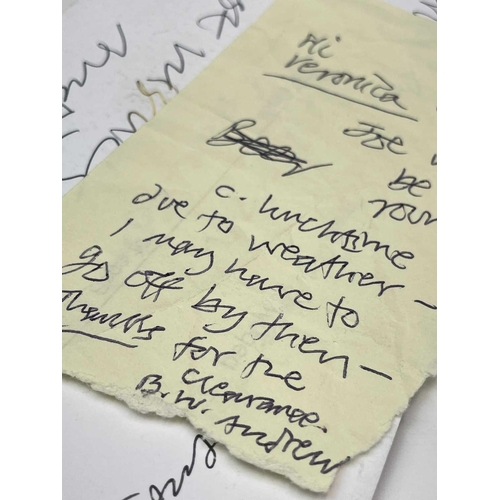 Hi
Veronica
Joe
be
roun
c. lunchtime
due to weather -
I may have to
go off by then -
Thanks for the
clearance.
B.W. Andrew